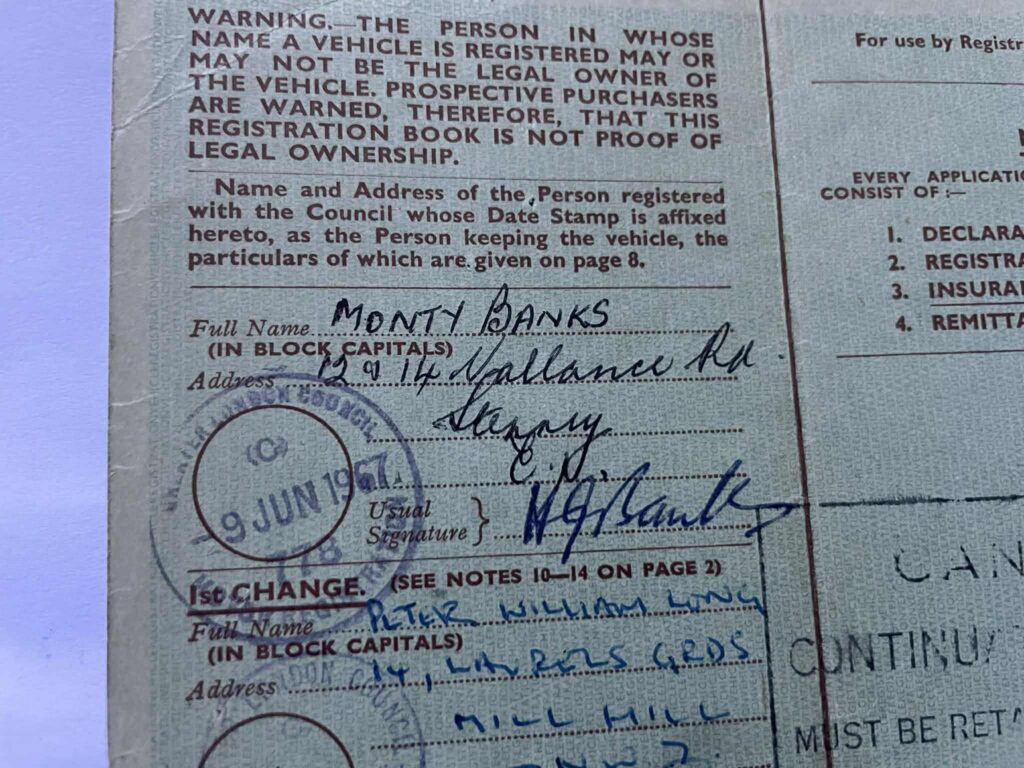 WARNING.—THE PERSON IN WHOSE
NAME A VEHICLE IS REGISTERED MAY OR
MAY NOT BE THE LEGAL OWNER OF
THE VEHICLE. PROSPECTIVE PURCHASERS
ARE WARNED, THEREFORE, THAT THIS
REGISTRATION BOOK IS NOT PROOF OF
LEGAL OWNERSHIP.
Name and Address of the Person registered
with the Council whose Date Stamp is affixed
hereto, as the Person keeping the vehicle, the
particulars of which are given on page 8.
Full Name MONTY BANKS
(IN BLOCK CAPITALS)
Address 12 14 Vallance Rd
Stepney
Usual
Signature } Banks
LONDON COUNCIL
(C)
9 JUN 1967
778
1st CHANGE. (SEE NOTES 10—14 ON PAGE 2)
Full Name PETER WILLIAM LONG
(IN BLOCK CAPITALS)
Address 14, LAURELS GRDS
MILL HILL
NW7.
LONDON COUNCIL
For use by Registr
EVERY APPLICATIO
CONSIST OF :—
1. DECLARA
2. REGISTRA
3. INSURAN
4. REMITTA
CAN
CONTINUA
MUST BE RETA